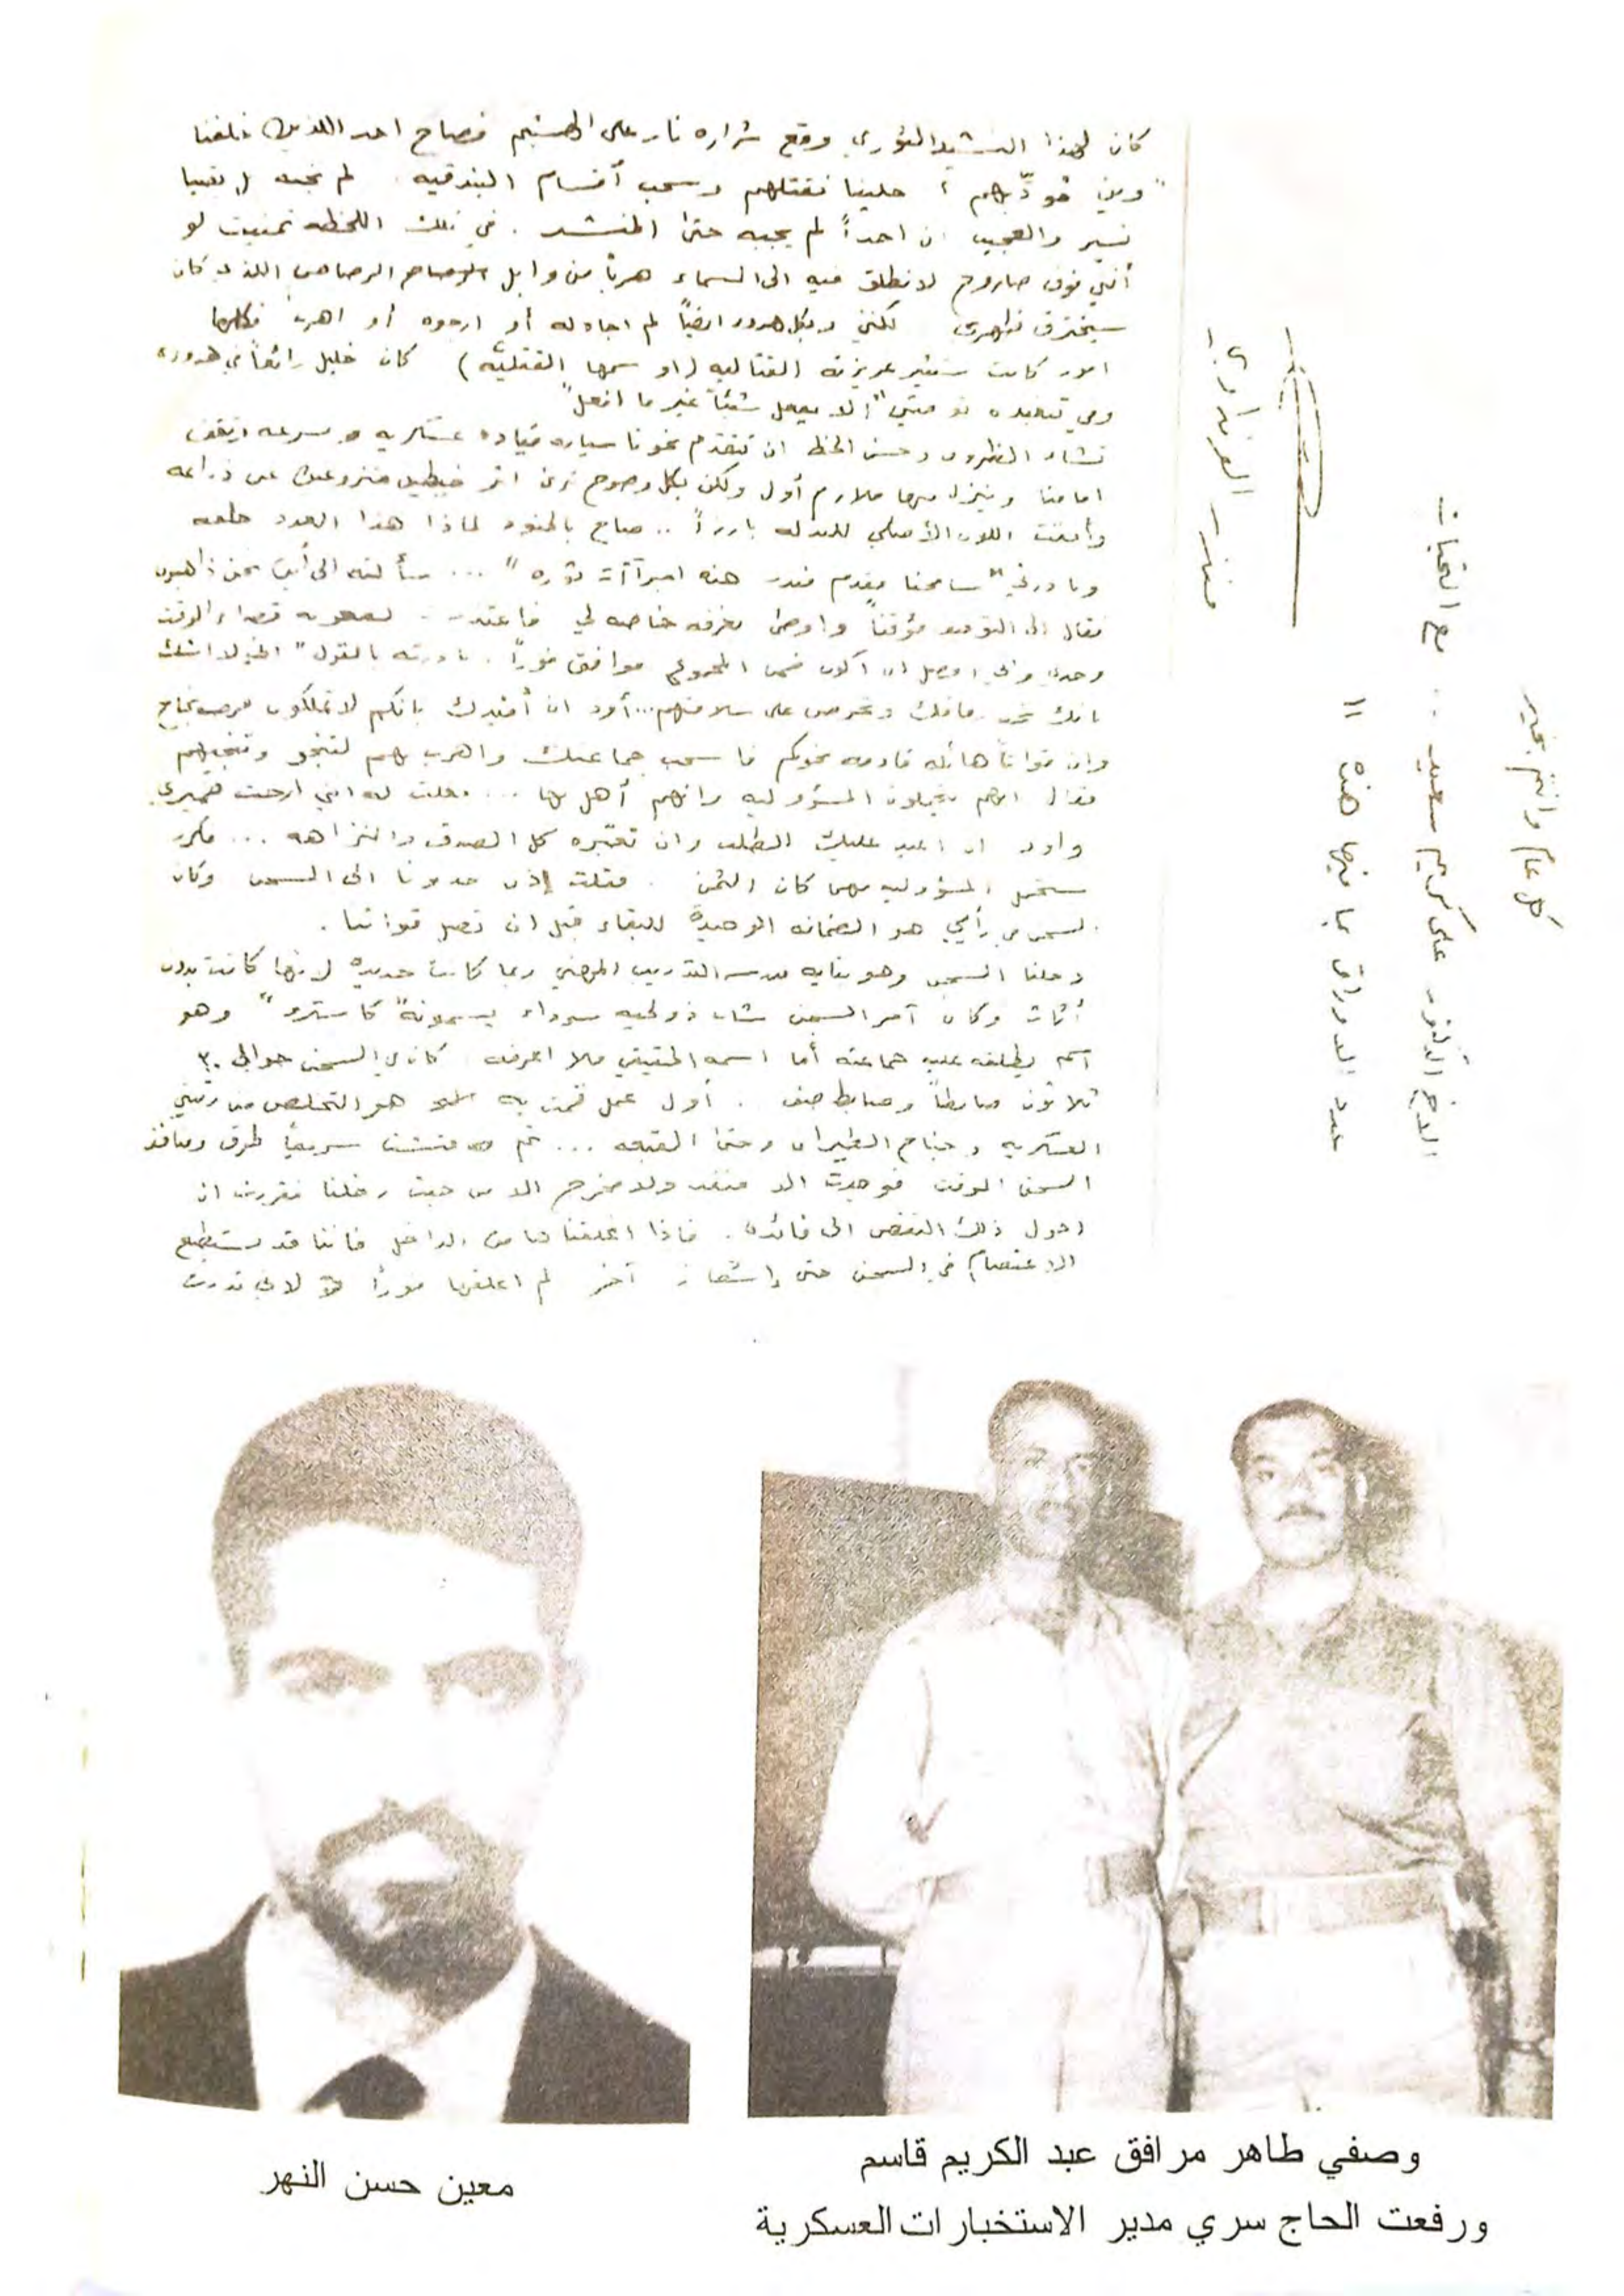 كان لهذا النشيد الثوري وقع شراره نار على الهشيم فصاح احد اللذين خلفنا
"وين نودّيهم؟ خلينا نقتلهم وسحب أقسام البندقيه. لم نجبه بقينا
نسير والعجيب ان احداً لم يجبه حتى المنشد. في تلك اللحظه تمنيت لو
أنني فوق صاروخ لانطلق فيه الى السماء هرباً من وابل الرصاص اللذي كان
سيخترق ظهري لكنني وبكل هدوء ايضاً لم اجادله أو ارجوه أو اهرب فكلها
امور كانت ستثير غريزته القتاليه (او سمها القتليه) كان خليل رائعاً في هدوءه
وفي تنفيذه توصيتي "الا يعمل شيئاً غير ما افعل"
تشاء الظروف وحسن الحظ ان تتقدم نحونا سياره قياده عسكريه وبسرعه وتقف
امامنا وينزل منها ملازم أول ولكن بكل وضوح نرى اثر خيطين منزوعين عن ذراعه
اللون الأصلي للبدله بارزاً .. صاح بالجنود لماذا هذا العدد
وبادرني "سامحنا مقدم منذر هذه اجراآت ثوره" ... سألته الى أين نحن ذاهبون
فقال الى التوقيف مؤقتاً واوصى بغرفه خاصه لي فاعتذرت لصعوبه قضاء الوقت
وحدي واني افضل ان اكون ضمن المجموع موافق فوراً. بادرته بالقول "اني لا اشك
بانك تحب رفاقك وتحرص على سلامتهم... أود ان أفيدك بانكم لا تملكون فرصه نجاح
وان قواتاً هائله قادمه نحوكم فاسحب جماعتك واهرب بهم لتنجو وتنجيهم
فقال انهم يتحملون المسؤوليه وانهم أهل لها ... فقلت له انني ارحت ضميري
واود ان اعيد عليك الطلب وان تعتبره كل الصدق والنزاهه ... فكرر
سنتحمل المسؤوليه مهما كان الثمن. فقلت إذن خدونا الى السجن وكان
السجن في رأيي هو الضمانه الوحيدة للبقاء قبل ان تصل قواتنا.
دخلنا السجن وهو بنايه مدرسه التدريب المهني ربما كانت جديده لانها كانت بدون
أثاث وكان آمر السجن شاب ذو لحيه سوداء يسمونه "كاسترو" وهو
اسم يطلقه عليه جماعته أما اسمه الحقيقي فلا اعرفه. كان في السجن حوالي ٣٠
ثلاثون ضابطاً وضابط صف. أول عمل قمت به هو التخلص من رتبتي
العسكريه وجناح الطيران وحتى القبعه ... ثم فتشت سريعاً طرق ومنافذ
السجن المؤقت فوجدت الا منفذ ولا مخرج الا من حيث دخلنا فقررت ان
احول ذلك النقص الى فائده. فاذا اغلقنا من الداخل فاننا قد نستطيع
الاعتصام في السجن حتى إشعار آخر لم اغلقها فوراً لاني قدرت
منذر الونداوي
مع التحيات
الاخ الدكتور علي كريم سعيد ..
عدد الاوراق بما فيها هذه ١١
كل عام وانتم بخير
معين حسن النهر
وصفي طاهر مرافق عبد الكريم قاسم
ورفعت الحاج سري مدير الاستخبارات العسكرية